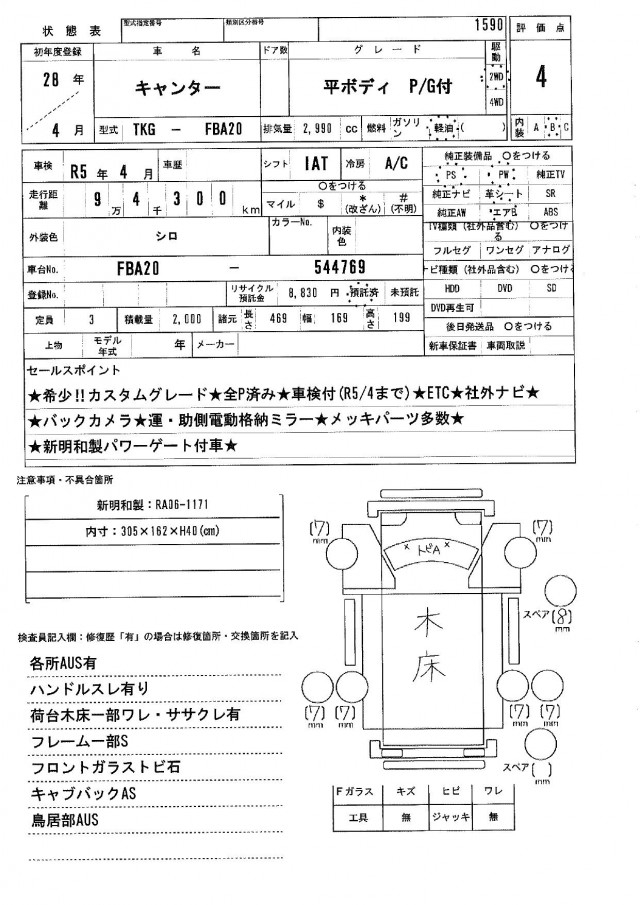 状態表 型式指定番号 類別区分番号 1590 評価点
初年度登録 車名 ドア数 グレード 駆動
28年 キャンター 平ボディ P/G付 2WD 4
4WD
4月 型式 TKG － FBA20 排気量 2,990 cc 燃料 ガソリン 軽油 ( ) 内装 A B C
車検 R5年 4月 車歴 シフト IAT 冷房 A/C 純正装備品 〇をつける
PS PW 純正TV
走行距離 9万 4千 3 0 0 km 〇をつける
マイル $ *(改ざん) #(不明) 純正ナビ 革シート SR
純正AW エアB ABS
外装色 シロ カラーNo. 内装色 TV種類(社外品含む) 〇をつける
フルセグ ワンセグ アナログ
車台No. FBA20 － 544769 ナビ種類(社外品含む) 〇をつける
登録No. リサイクル預託金 8,830 円 預託済 未預託 HDD DVD SD
DVD再生可
定員 3 積載量 2,000 諸元 長さ 469 幅 169 高さ 199 後日発送品 〇をつける
上物 モデル年式 年 メーカー 新車保証書 車両取説
セールスポイント
★希少!!カスタムグレード★全P済み★車検付(R5/4まで)★ETC★社外ナビ★
★バックカメラ★運・助側電動格納ミラー★メッキパーツ多数★
★新明和製パワーゲート付車★
注意事項・不具合箇所
新明和製：RA06-1171
内寸：305×162×H40(cm)
(7)mm (7)mm
トビA
スペア(8)mm
木床
検査員記入欄：修復歴「有」の場合は修復箇所・交換箇所を記入
各所AUS有
ハンドルスレ有り
荷台木床一部ワレ・ササクレ有
(7)mm (7)mm (7)mm (7)mm
フレーム一部S
フロントガラストビ石
スペア( )mm
キャブバックAS
鳥居部AUS
Fガラス キズ ヒビ ワレ
工具 無 ジャッキ 無